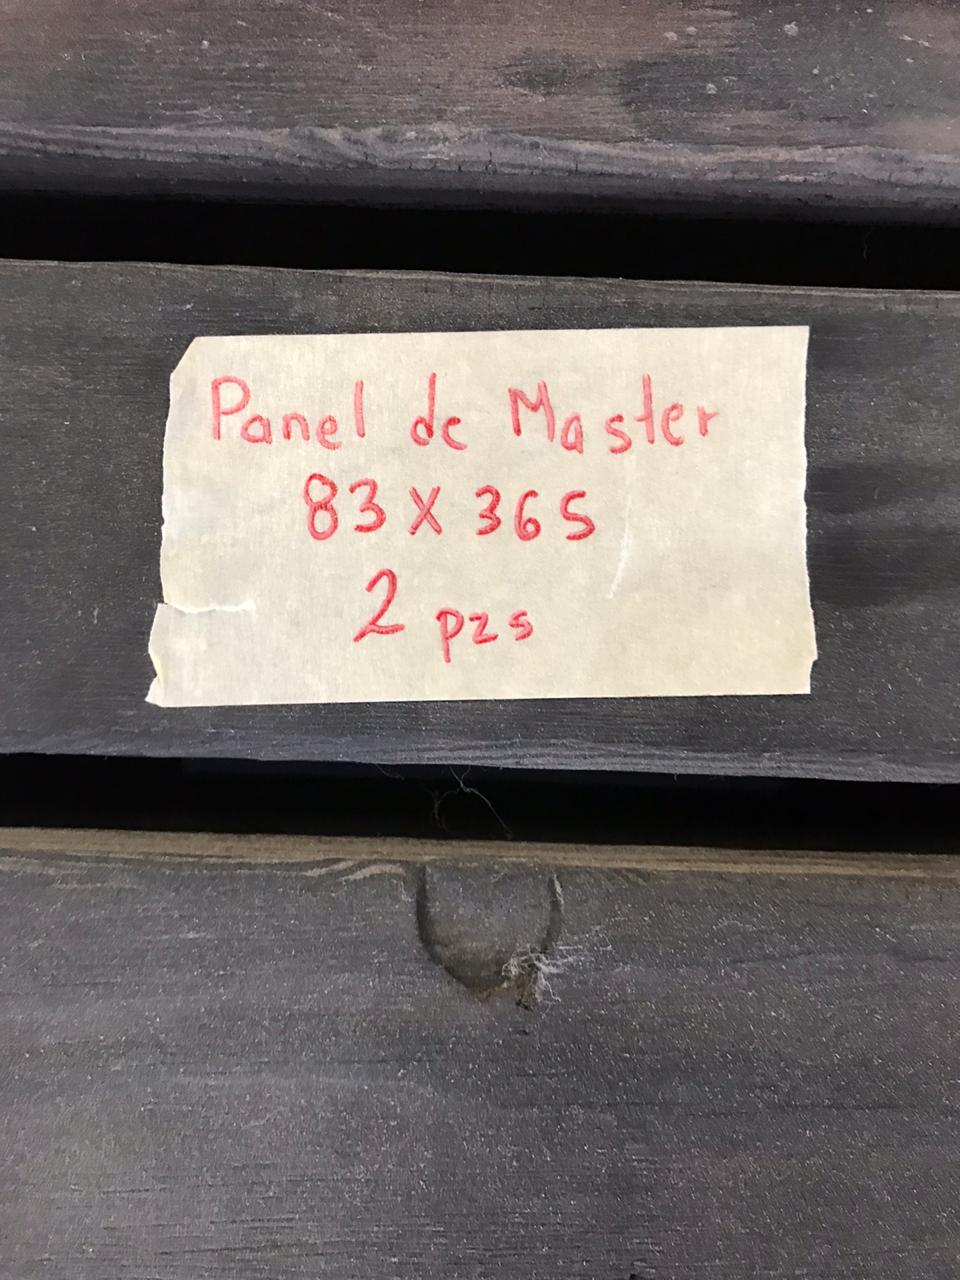 Panel de Master
83 X 365
2 pzs